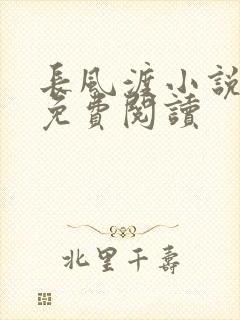 長風渡小說
免費閱讀
北里千壽